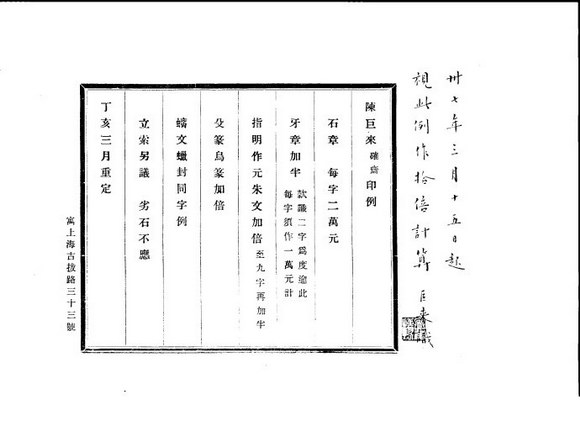 卅七年三月十五日起
視此例作拾倍計算 巨來識
陳巨來 確齋 印例
石章 每字二萬元
牙章加半 款識二字為度逾此
每字須作一萬元計
指明作元朱文加倍 至九字再加半
殳篆鳥篆加倍
蠟封同字例
立索另議 劣石不應
丁亥三月重定
寓上海古拔路三十三號